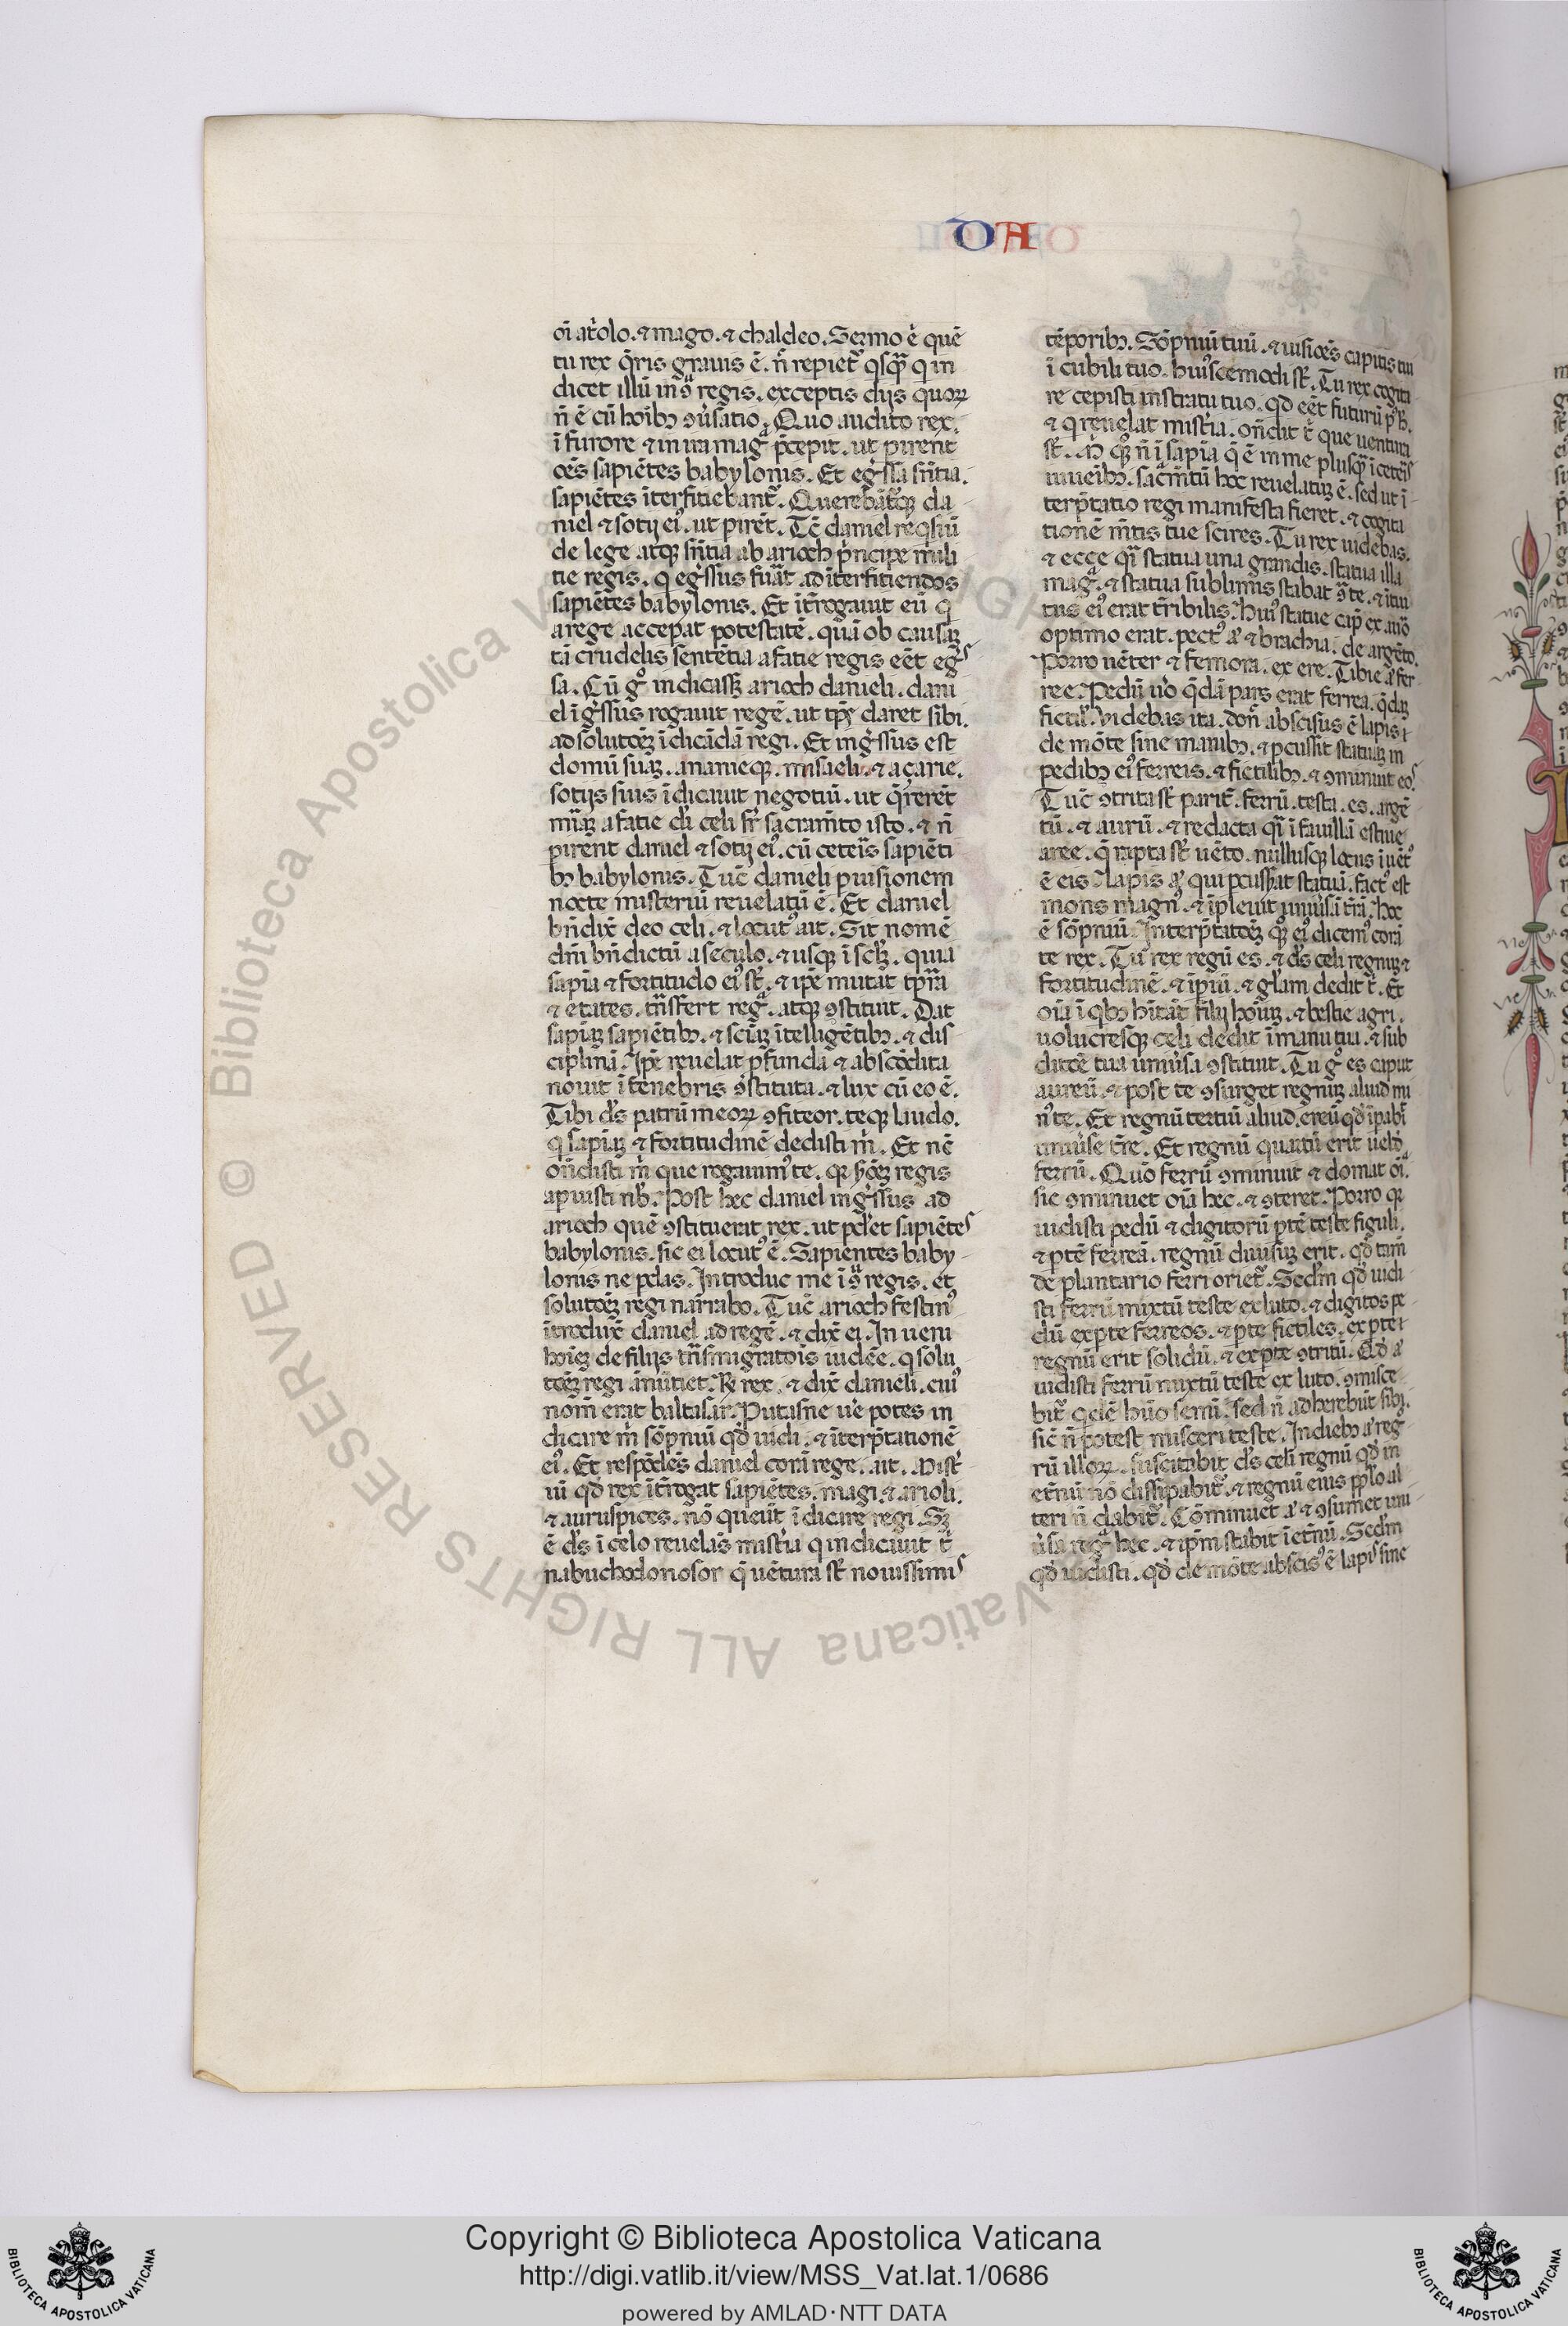 DA
oī arꝰolo. ⁊ mago. ⁊ chaldeo. Sermo .n. quē
tu rex q̄ris grauis ē. n̄ repiet᷑ q̄sq̄ᷓ q in
dicet illū in ꝯᷓ regis. exceptis dijs quoꝝ
n̄ ē cū hoībꝫ ꝯūsatio. Quo audito rex.
ī furore ⁊ in ira magᷓ p̄cepit. ut pirent
oēs sapiētes babylonis. Et egᷓssa sn̄tia.
sapiētes īterfitiebant᷑. Querebāt᷑qꝫ da
niel ⁊ sotij eiꝰ. ut pirēt. Tc̄ daniel reqsiū
de lege atqꝫ sn̄tia ab arioch p̄ncipe mili
tie regis. q egᷓssus fuāt ad īterfitiendos
sapiētes babylonis. Et īt̄rogauit eū q
a rege accepat potestatē. quā ob causaꝫ
tā crudelis sentētia a fatie regis eēt egᷓs
sa. Cū gͦ indicassꝫ arioch danieli. dani
el īgᷓssus rogauit regē. ut tp̄s daret sibi.
ad solutōꝫ īdicādā regi. Et ingᷓssus est
domū suaꝫ. ananieqꝫ. misaeli. ⁊ açarie.
sotijs suis īdicauit negotiū. ut q̄rerēt
mīaꝫ a fatie di celi sr̄ sacramēto isto. ⁊ n̄
pirent daniel ⁊ sotij eiꝰ. cū ceteris sapiēti
bꝫ babylonis. Tuc̄ danieli p uisionem
nocte misteriū reuelatū ē. Et daniel
bn̄dix̄ deo celi. ⁊ locutꝰ ait. Sit nomē
dn̄i bn̄dictū a seculo. ⁊ usqꝫ ī sclꝫ. quia
sapīa ⁊ fortitudo eiꝰ st̄. ⁊ ip̄e mutāt tp̄ra
⁊ etates. trāsfert regᷓ. atqꝫ ꝯstituit. Dat
sapīaꝫ sapiētibꝫ. ⁊ sciāꝫ ītelligētibꝫ. ⁊ dis
ciplinā. Ip̄e reuelat pfunda ⁊ abscōdita
nouit ī tenebris ꝯstituta. ⁊ lux cū eo ē.
Tibi ds̄ patrū meoꝝ ꝯfiteor. teqꝫ laudo.
q sapīaꝫ ⁊ fortitudinē dedisti m̄. Et nē
on̄disti m̄ que rogauimꝰ te. qꝛ ẜmōꝫ regis
apuisti nb̄. Post hec daniel ingᷓssus ad
arioch quē ꝯstituerat rex. ut pd̄et sapiētes
babylonis. sic ei locutꝰ ē. Sapientes baby-
lonis ne pdas. Introduc me ī ꝯᷓ regis. et
solutōꝫ regi narrabo. Tuc̄ arioch festinꝰ
ītrodux̄ daniel ad regē. ⁊ dix̄ ei. In ueni
hoīeꝫ de filijs trāsmigratōis iudēe. q solu
tōꝫ regi ānūtiet. R̄ rex. ⁊ dix̄ danieli. cuiꝰ
nom̄ erat baltasar. Putasne ue᷑ potes in
dicare m̄ sōpniū qd̄ uidi. ⁊ īterp̄tationē
eiꝰ. Et respōdēs daniel corā rege. ait. Mist̄
iū qd̄ rex īt̄rogat sapiētes. magi. ⁊ arioli.
⁊ auruspices. nō queūt īdicare regi. Sꝫ
ē ds̄ ī celo reuelās mist̄ia q indicauit t̄
nabuchodonosor q̄ uētura st̄ nouissimis
tēporibꝫ. Sōpniū tuū. ⁊ uisiōēs capitis tui
ī cubili tuo. huiꝰscemodi st̄. Tu rex cogita
re cepisti in stratu tuo. qd̄ eēt futurū p̄ h̄.
⁊ q reuelat mist̄ia. on̄dit t̄ que uentura
st̄. M̄ qꝫ n̄ ī sapīa q̄ ē in me plusq̄ᷓ ī cetēs
uiuētibꝫ. sacᷓmētū hoc reuelatuꝫ ē. sed ut ī-
terp̄tatio regi manifesta fieret. ⁊ cogita
tionē mētis tue scires. Tu rex uidebas.
⁊ ecce qᷓi statua una grandis. statua illa
magᷓ. ⁊ statua sublimis stabat ꝯᷓ te. ⁊ ītui
tus eiꝰ erat tr̄ribilis. Huiꝰ statue cap̄ ex auō
optimo erat. pectꝰ āt ⁊ brachia. de argēto.
Porro uēter ⁊ femora. ex ere. Tibie āt fer
ree. Pedū uo᷑ q̄dā pars erat ferrea. q̄dāꝫ
fictil̄. Uidebas ita. don̄ abscisus ē lapis
de mōte sine manibꝫ. ⁊ pcussit statuāꝫ in
pedibꝫ eiꝰ ferreis. ⁊ fictilibꝫ. ⁊ ꝯminuit eos.
Tuc̄ ꝯtrita st̄ parit᷑. ferrū. testa. es. argē
tū. ⁊ aurū. ⁊ redacta qᷓi ī fauillā estiue
aree. q̄ rapta st̄ uēto. nullusqꝫ locus īuētꝰ
ē eis. Lapis āt qui pcusserat statuā. factꝰ est
mons magnꝰ. ⁊ īpleuit uniūsā tr̄ā. Hoc
ē sōpniū. Interp̄tatōꝫ qꝫ eiꝰ dicemꝰ corā
te rex. Tu rex regū es. ⁊ ds̄ celi regnuꝫ ⁊
fortitudinē. ⁊ īpiū. ⁊ glām dedit t̄. Et
oīa ī qbꝫ hītāt filij hoīuꝫ. ⁊ bestie agri.
uolucresqꝫ celi dedit ī manu tua. ⁊ sub
ditōē tua uniūsa ꝯstituit. Tu gͦ es caput
aureū. ⁊ post te ꝯsurget regnuꝫ aliud mi
nꝰ te. Et regnū tertiū aliud. ereū qd̄ īpabit
uniūse tr̄e. Et regnū quartū erit uelud
ferrū. Quō ferrū ꝯminuit ⁊ domat oīᷓ.
sic ꝯminuet oīa hec. ⁊ ꝯteret. Porro qꝛ
uidisti pedū ⁊ digitorū ptē teste figuli.
⁊ ptē ferreā. regnū diuisuꝫ erit. qd̄ tam̄
de plantario ferri oriet᷑. Sedm̄ qd̄ uidi
sti ferrū mixtū teste ex luto. ⁊ digitos pe
dū ex pte ferreos. ⁊ pte fictiles. ex pte
regnū erit solidū. ⁊ ex pte ꝯtritū. Qd̄ āt
uidisti ferrū mixtū teste ex luto. ꝯmisce
bit᷑ qdē hūo semī. sed n̄ adherebūt sibi.
sic̄ n̄ potest misceri teste. In diebꝫ āt reg
rū illoꝝ. suscitabit ds̄ celi regnū qd̄ in
et̄nū nō dissipabit᷑. ⁊ regnū eius pp̄lo al
teri n̄ dabit᷑. Cōminuet āt ⁊ ꝯsumet uni
ūsa regᷓ hec. ⁊ ip̄m stabit ī et̄nū. Sedm̄
qd̄ uidisti. qd̄ de mōte abscisꝰ ē lapis sine
© Biblioteca Apostolica Vaticana ALL RIGHTS RESERVED
BIBLIOTECA APOSTOLICA VATICANA
Copyright © Biblioteca Apostolica Vaticana
http://digi.vatlib.it/view/MSS_Vat.lat.1/0686
powered by AMLAD·NTT DATA
BIBLIOTECA APOSTOLICA VATICANA